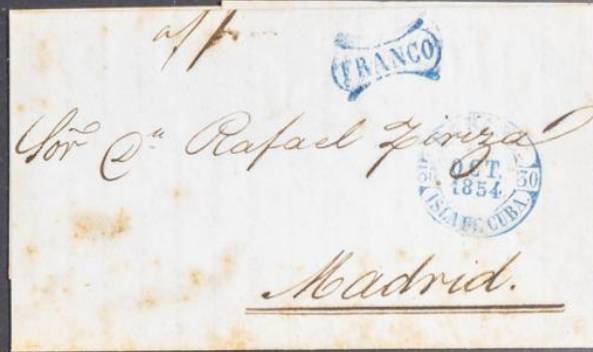 FRANCO
Sor Dn Rafael
30 OCT. 30
1854
ISLA DE CUBA.
Madrid.